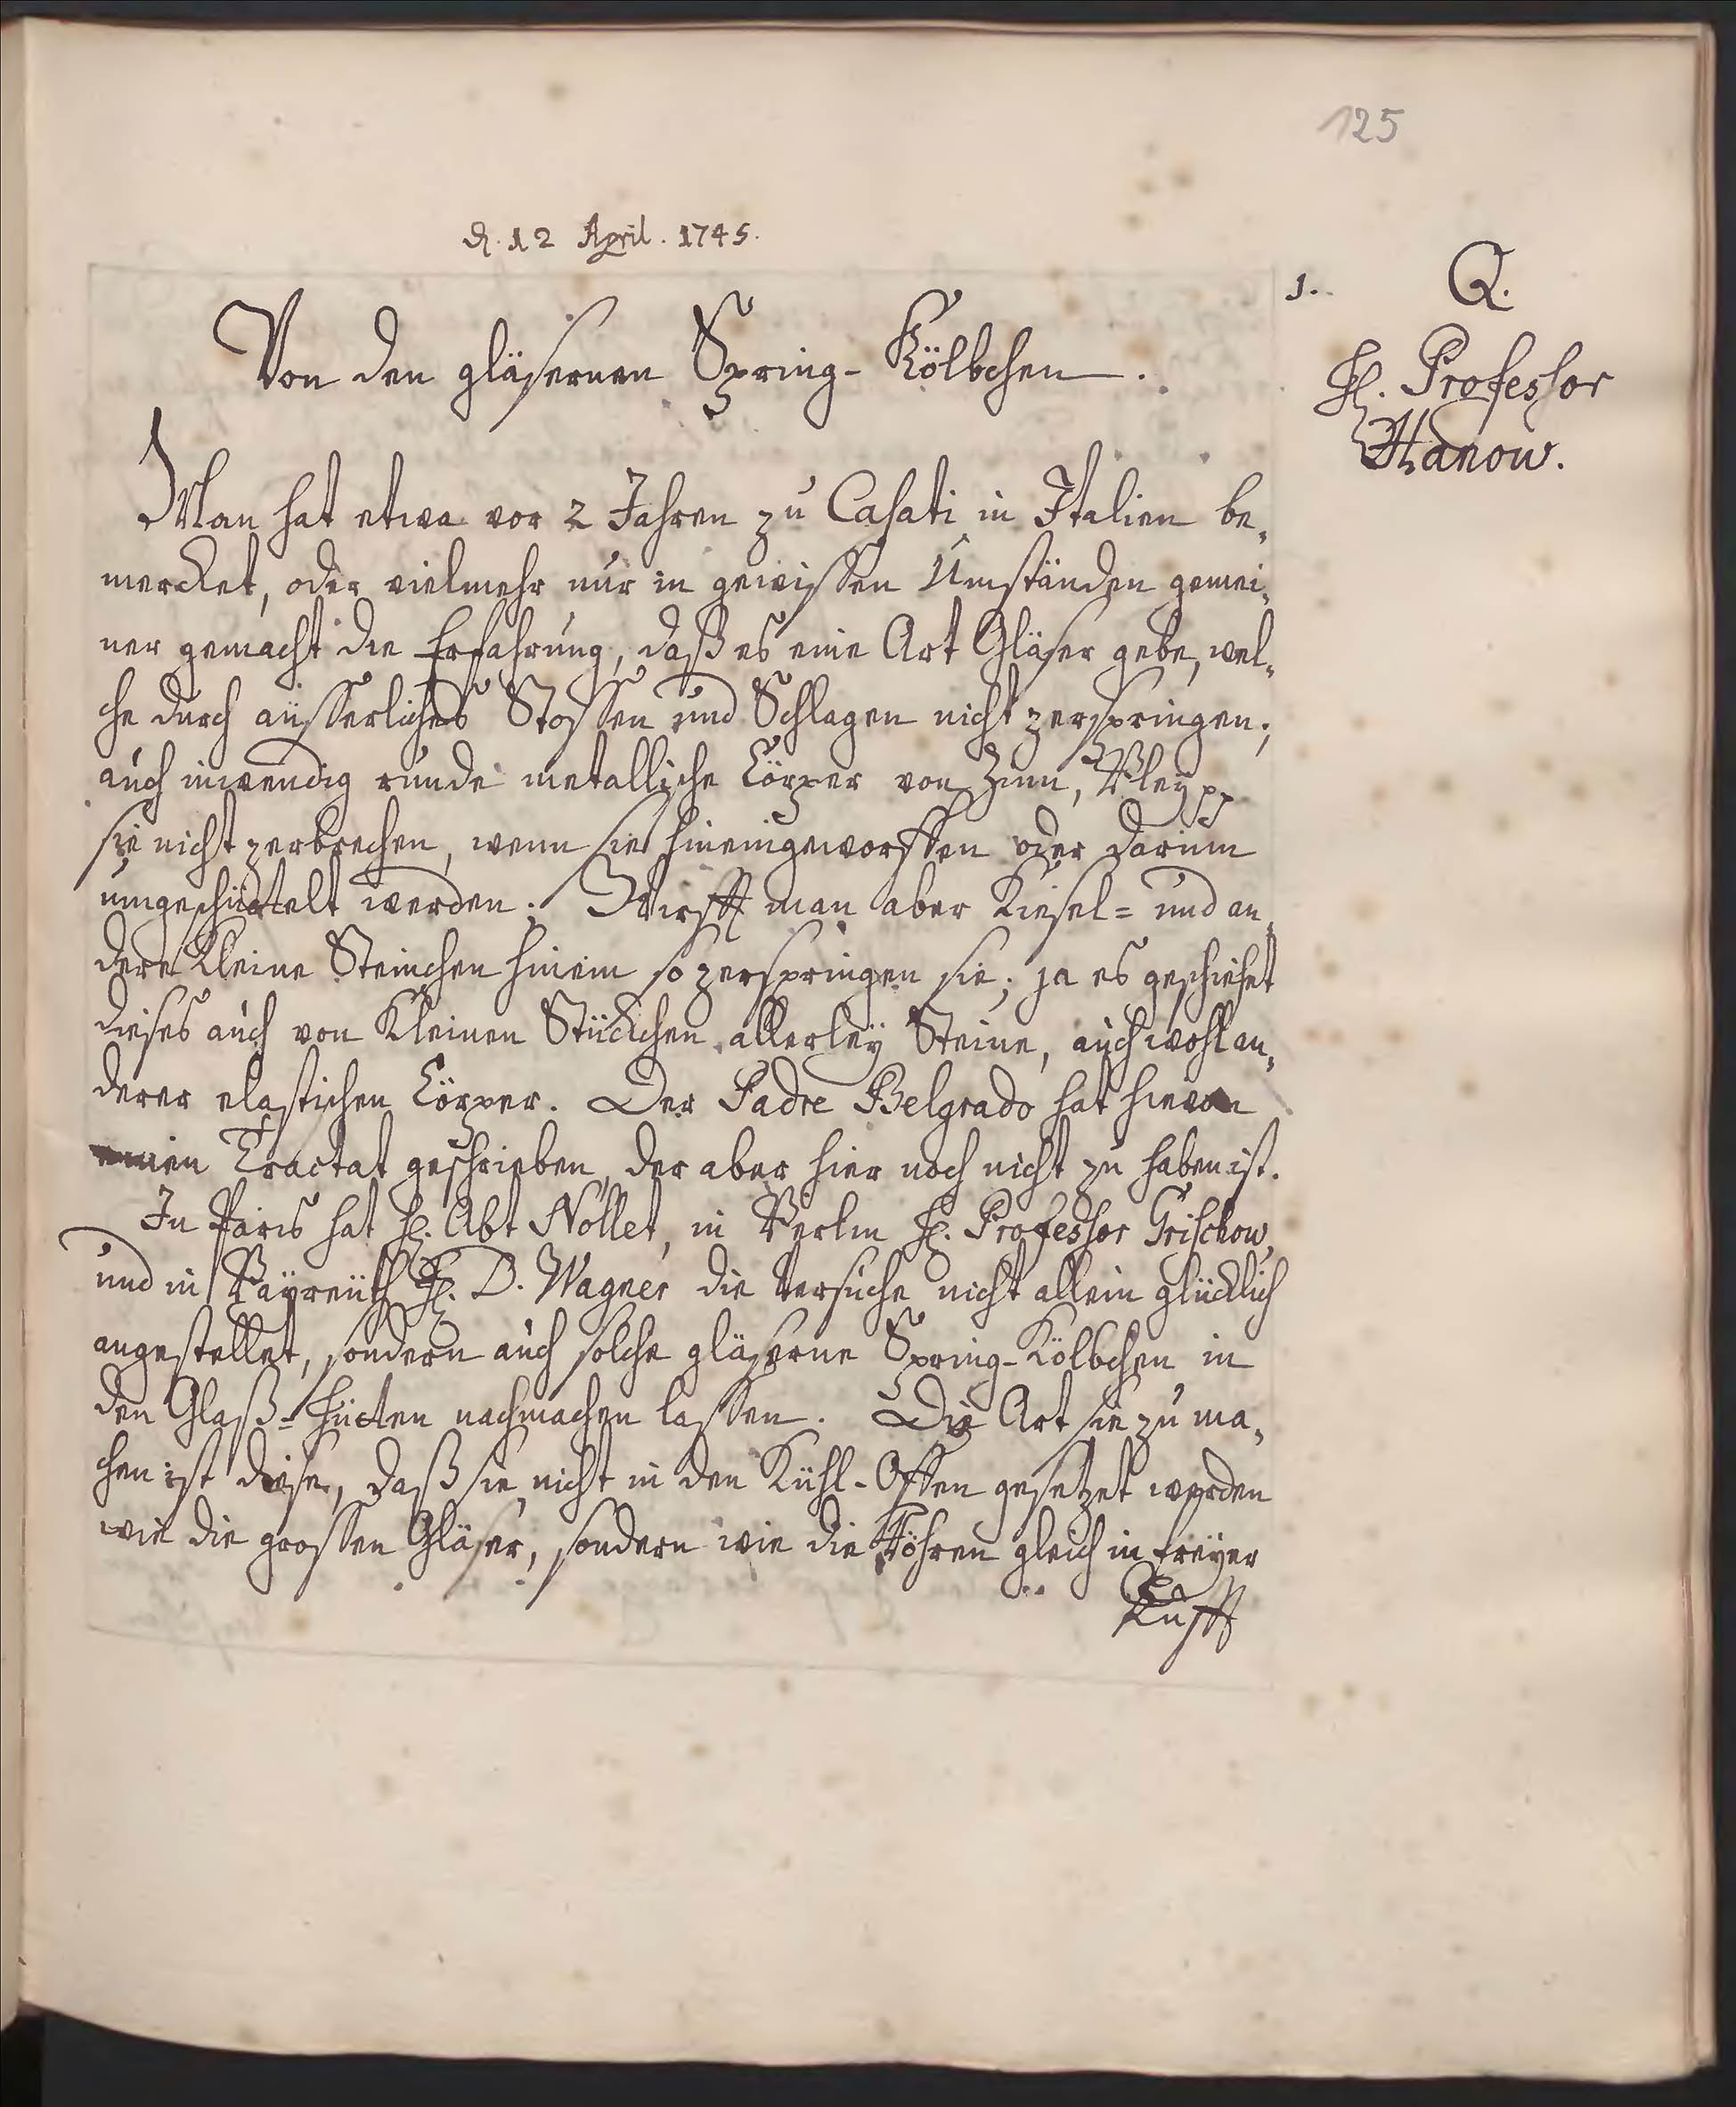 125
d. 12 April. 1745.
1. Q.
H. Professor
Hanow.
Von den gläsernen Spring-Kölbchen.
Man hat etwa vor 2 Jahren zu Casati in Italien be„
mercket, oder vielmehr nur in gewissen Umständen gemei„
ner gemacht die Erfahrung, daß es eine Art Gläser gebe, wel„
che durch äusserliches Stossen und Schlagen nicht zerspringen;
auch inwendig runde metalliche Cörper von Zinn, Bley pp
sie nicht zerbrechen, wenn sie hineingeworffen oder darinn
umgeschüttelt werden; Wirfft man aber Kiesel= und an„
dere kleine Steinchen hinein so zerspringen sie; ja es geschiehet
dieses auch von kleinen Stückchen allerley Steine, auch wohl an„
derer elastischen Cörper. Der Padre Belgrado hat hievon
einen Tractat geschrieben, der aber hier noch nicht zu haben ist.
In Paris hat H. Abt Nollet, in Berlin H. Professor Grischow,
und in Bayreuth H. D. Wagner die Versuche nicht allein glücklich
angestellet, sondern auch solche gläserne Spring-Kölbchen in
den Glaß=Hütten nachmachen lassen. Die Art sie zu ma„
chen ist diese, daß sie nicht in den Kühl-Offen gesetzet werden
wie die grossen Gläser, sondern wie die Röhren gleich in freyer
Lufft